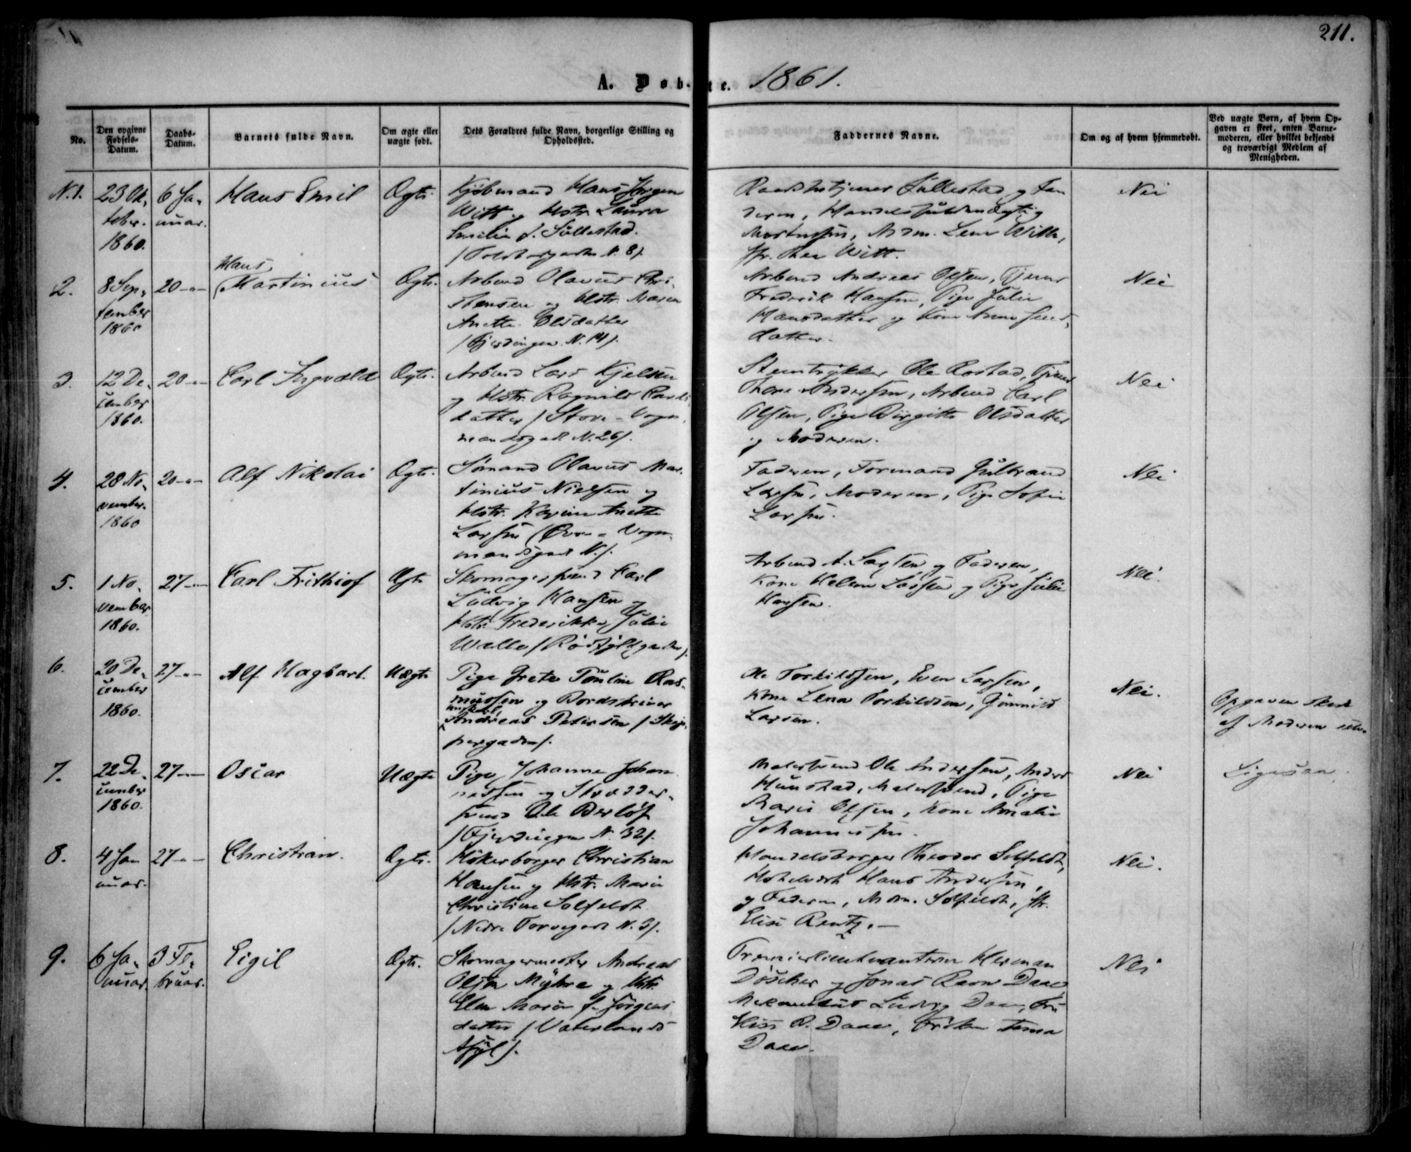 211.
A. Døbte. 1861.
No.
Den opgivne Fødsels-Datum.
Daabs-Datum.
Barnets fulde Navn.
Om ægte eller uægte født.
Dets Forældres fulde Navn, borgerlige Stilling og Opholdssted.
Faddernes Navne.
Om og af hvem hjemmedøbt.
Ved uægte Børn, af hvem Opgaven er skeet, enten Barnemoderen, eller hvilket bekjendt og troværdigt Medlem af Menigheden.
N. 1.
23 Ok-
tober
1860.
6 Ja-
nuar.
Hans Emil
Ægte
Kjøbmand Hans Jørgen
Witt og Hstr. Laura
Emilie f. Süllestad.
N. 8/.
Süllestad og
Handelsfuldmægtig
Mdm. Witt,
Witt.
Nei
2.
8 Sep-
tember
1860
20 — —
Hans
Martinius
Ægte
Arbmd Olavus Chri-
stensen og Hstr. Maren
Anette Olsdatter
/Fjerdingen N. 14/.
Arbmd Andreas Olsen, Tjener
Frederik Hansen, Pige Julie
Hansdatter og Kone Anne
datter.
Nei
3.
12 De-
cember
1860.
20 — —
Carl Ingvald
Ægte
Arbmd Lars Kjelsen
og Hstr. Ragnild Carls-
datter /Store-Vogn-
mandsgade N. 26/.
Stentrykker Ole Rostad, Tjener
Andersen, Arbmd Carl
Olsen, Pige Birgitte Olsdatter
og Moderen.
Nei
4.
28 No-
vember
1860
20 — —
Alf Nikolai
Ægte
Sømand Olavus Mar-
tinius Nielsen og
Hstr. Karen Anette
Larsen /Øvre-Vogn-
mandsgade N. /.
Faderen, Formand Gulbrand
Larsen, Moderen, Pige Sofie
Larsen.
Nei
5.
1 No-
vember
1860.
27 — —
Carl Frithiof
Ægte
Skomagersvend Carl
Ludvig Hansen og
Hstr. Frederikke Julie
/Rødfyldgaden/.
Arbmd A. og Faderen,
Kone Helene Larsen og Pige Julie
Hansen.
Nei.
6.
20 De-
cember
1860.
27 — —
Alf Hagbart.
Uægte
Pige Grete Tomine Ras-
mussen og Bordskriver
Andreas Pedersen /Skip-
pergaden/.
Ole Torkildsen, Even Larsen,
Kone Lena Torkildsen, Gunnild
Larsen.
Nei.
Opgaven skeet
af Moderen selv.
7.
22 De-
cember
1860.
27 — —
Oscar
Uægte
Pige Johanne Johan-
nessen og Skrædder-
svend Ole
/Fjerdingen N. 32/.
Malersvend Ole Andersen, Anders
Malersvend, Pige
Marie Olsen, Kone Amalie
Johannessen.
Nei
Ligesaa.
8.
4 Ja-
nuar.
27 — —
Christian.
Ægte.
Høkerborger Christian
Hansen og Hstr. Marie
Christine Solfeldt
/Nedre Torvegade N. 3/.
Handelsborger Theodor Solfeldt,
Hans Andersen,
og Faderen, Mdm. Solfeldt, Fr.
Elise Rentz. —
Nei.
9.
6 Ja-
nuar
3 Fe-
bruar.
Eigil
Ægte.
Skomagermester Andreas
Olsen Myhre og Hstr.
Elen Marie f. Jørgens-
datter /Vaterlands
Premierlieutenanterne Herman
og Jonas Daae
Ludvig Daae,
Elise R. Daae, Frøken
Daae.
Nei